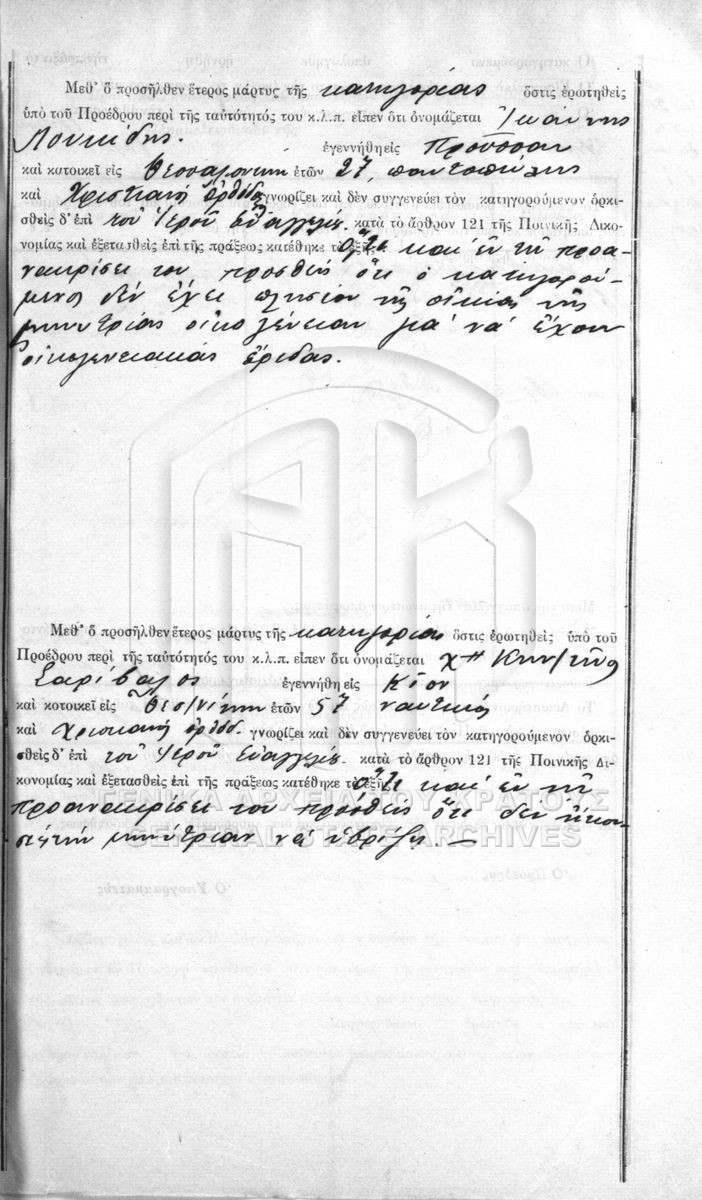 Μεθ' ὃ προσῆλθεν ἕτερος μάρτυς τῆς κατηγορίας ὅστις ἐρωτηθεὶς
ὑπὸ τοῦ Προέδρου περὶ τῆς ταὐτότητός του κ.λ.π. εἶπεν ὅτι ὀνομάζεται Ἰωάννης
Λουκίδης. ἐγεννήθη εἰς Προῦσσαν
καὶ κατοικεῖ εἰς Θεσσαλονίκην ἐτῶν 27, παντοπώλης
καὶ Χριστιανὸς ὀρθόδοξ γνωρίζει καὶ δὲν συγγενεύει τὸν κατηγορούμενον ὁρκι-
σθεὶς δ' ἐπὶ τοῦ Ἱεροῦ Εὐαγγελίου κατὰ τὸ ἄρθρον 121 τῆς Ποινικῆς Δικο-
νομίας καὶ ἐξετασθεὶς ἐπὶ τῆς πράξεως κατέθηκε τὰ ἑξῆς ὅ,τι καὶ ἐν τῇ προα-
νακρίσει του προσθεὶς ὅτι ὁ κατηγορού-
μενος δὲν ἔχει πλησίον τῆς οἰκίας τῆς
μηνυτρίας οἰκογένειαν γιὰ νὰ ἔχουν
οἰκογενειακὰς ἔριδας.
Μεθ' ὃ προσῆλθεν ἕτερος μάρτυς τῆς κατηγορίας ὅστις ἐρωτηθεὶς ὑπὸ τοῦ
Προέδρου περὶ τῆς ταὐτότητός του κ.λ.π. εἶπεν ὅτι ὀνομάζεται
Σαρίβαλος ἐγεννήθη εἰς Κίον
καὶ κατοικεῖ εἰς Θεσ/νίκην ἐτῶν 57 ναυτικὸς
καὶ χριστιανὸς ὀρθόδ. γνωρίζει καὶ δὲν συγγενεύει τὸν κατηγορούμενον ὁρκι-
σθεὶς δ' ἐπὶ τοῦ Ἱεροῦ Εὐαγγελίου κατὰ τὸ ἄρθρον 121 τῆς Ποινικῆς Δι-
κονομίας καὶ ἐξετασθεὶς ἐπὶ τῆς πράξεως κατέθηκε τὰ ἑξῆς ὅ,τι καὶ ἐν τῇ
προανακρίσει του προσθεὶς ὅτι δὲν ἤκου-
σε τὴν μηνύτριαν νὰ ὑβρίζῃ.
ΓΕΝΙΚΑ ΑΡΧΕΙΑ ΤΟΥ ΚΡΑΤΟΥΣ
GENERAL STATE ARCHIVES